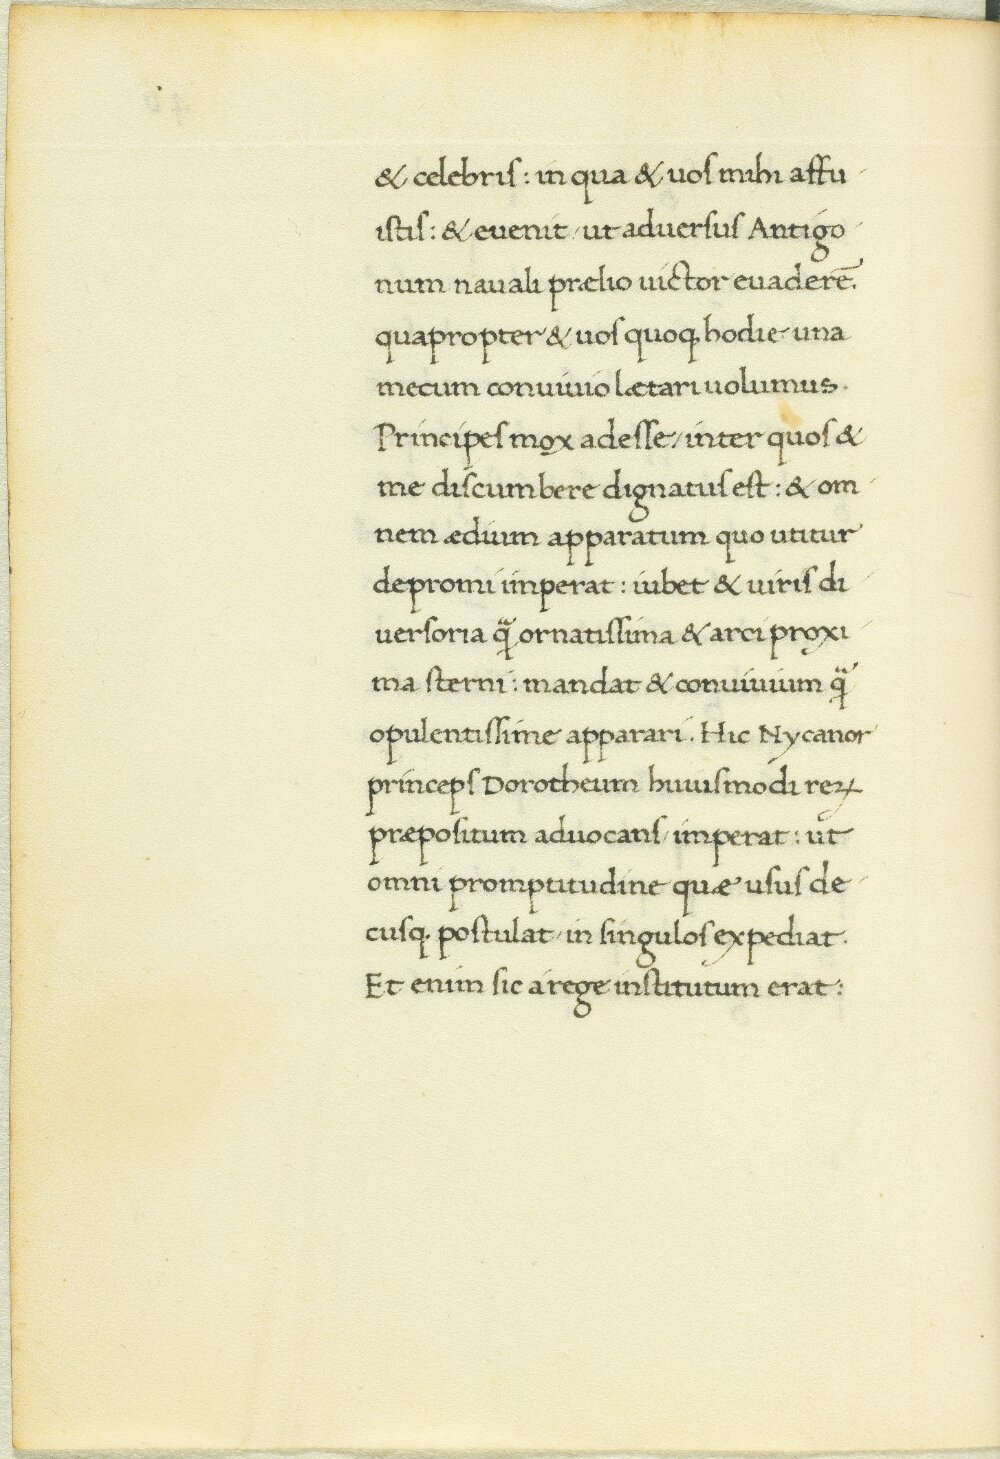 & celebris: in qua & uos mihi affu-
istis: & euenit / ut aduersus Antigo-
num nauali prælio uictor euaderē.
quapropter & uos quoq; hodie una
mecum conuiuio lætari uolumus.
Principes mox adesse / inter quos &
me discumbere dignatus est: & om-
nem ædium apparatum quo utitur
depromi imperat: iubet & uiris di-
uersoria q̈ ornatissima & arci proxi-
ma sterni: mandat & conuiuium q̈
opulentissime apparari. Hic Nycanor
princeps Dorotheum huiusmodi reꝝ
præpositum aduocans / imperat: ut
omni promptitudine quæ usus de-
cusq; postulat / in singulos expediat.
Et enim sic a rege institutum erat: